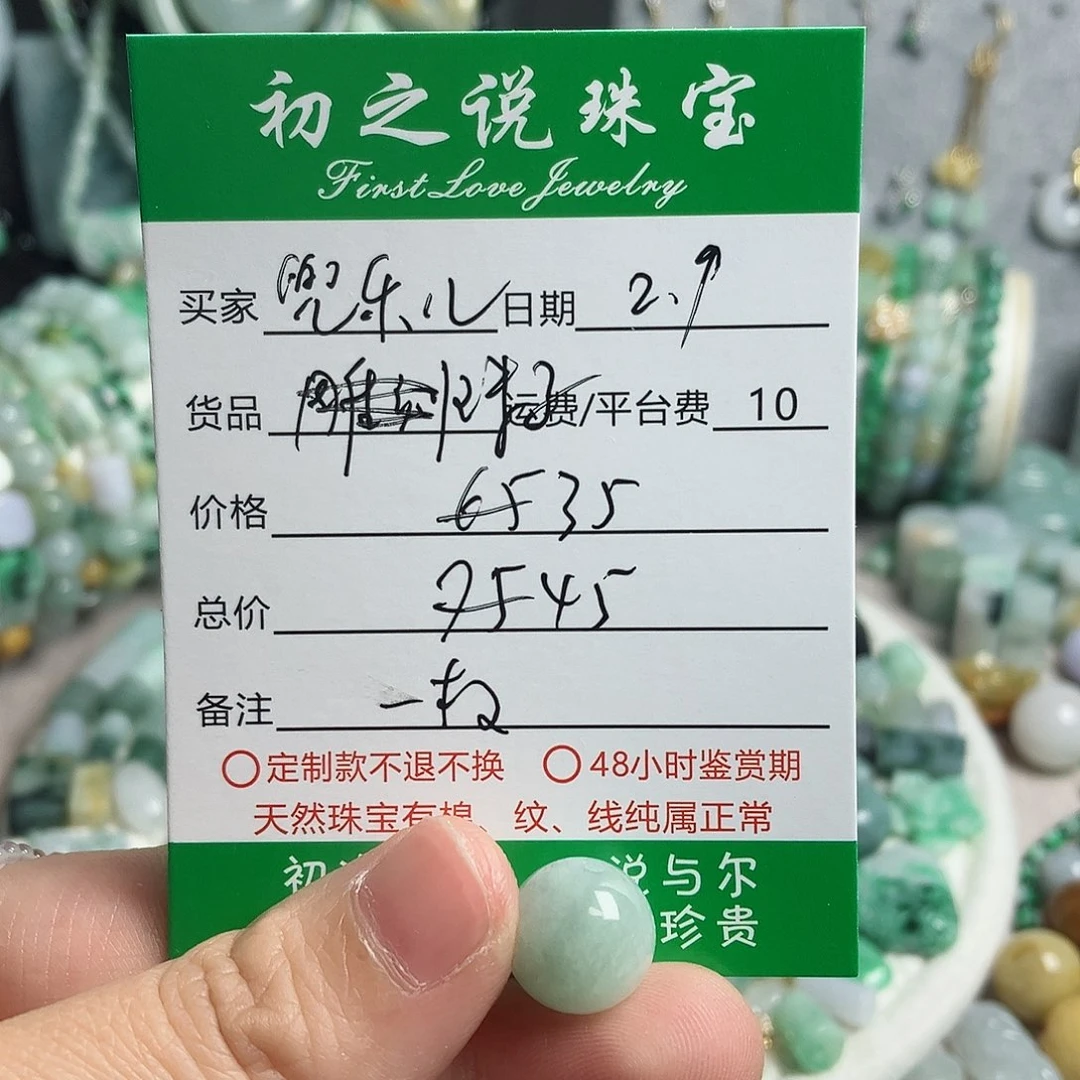 初之说珠宝
First Love Jewelry
买家 兜乐儿 日期 2.9
货品 运费/平台费 10
价格 6535
总价 7545
备注 一枚
○定制款不退不换 ○48小时鉴赏期
天然珠宝有棉、纹、线纯属正常
初 说与尔
珍贵